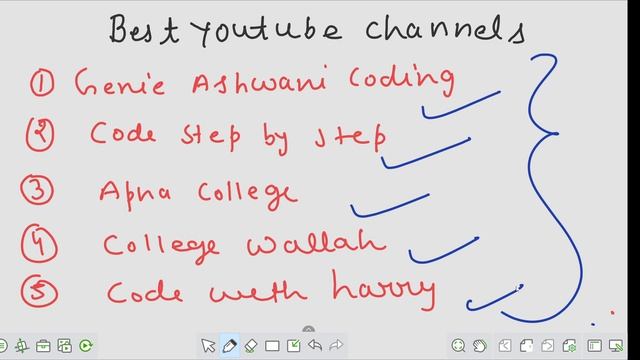 Best Youtube channels
① Genie Ashwani Coding
② Code step by step
③ Apna College
④ College wallah
⑤ Code weth harry